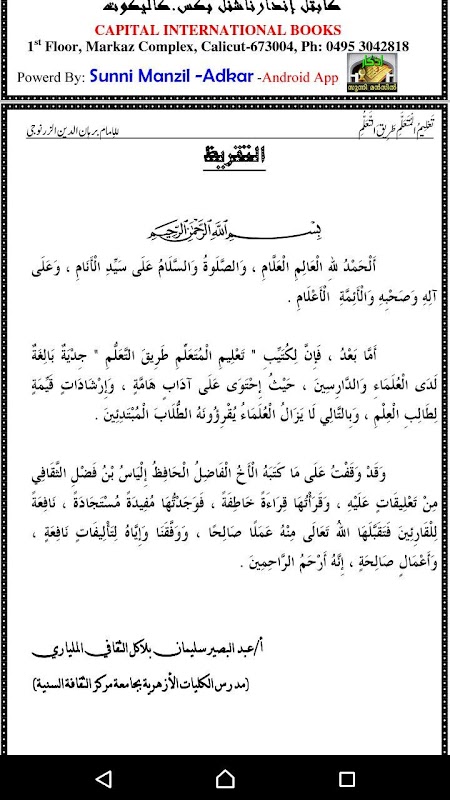 كابتل إنترناشنل بكس.كاليكوت
CAPITAL INTERNATIONAL BOOKS
1st Floor, Markaz Complex, Calicut-673004, Ph: 0495 3042818
Powerd By: Sunni Manzil -Adkar -Android App
സുന്നി മൻസിൽ
تَعْلِيمُ الْمُتَعَلِّمِ طَرِيقَ التَّعَلُّمِ
للإمام برهان الدين الزرنوجي
التقريظ
بِسْمِ اللهِ الرَّحْمٰنِ الرَّحِيْمِ
اَلْحَمْدُ للهِ الْعَالِمِ الْعَلَّامِ ، وَالصَّلَوةُ وَالسَّلَامُ عَلَى سَيِّدِ الْأَنَامِ ، وَعَلَى
آلِهِ وَصَحْبِهِ وَالْأَئِمَّةِ الْأَعْلَامِ .
أَمَّا بَعْدُ ، فَإِنَّ لِكُتَيِّبِ " تَعْلِيمِ الْمُتَعَلِّمِ طَرِيقَ التَّعَلُّمِ " جِدِّيَةٌ بَالِغَةٌ
لَدَى الْعُلَمَاءِ وَالدَّارِسِينَ ، حَيْثُ إِحْتَوَى عَلَى آدَابٍ هَامَّةٍ ، وَإِرْشَادَاتٍ قَيِّمَةٍ
لِطَالِبِ الْعِلْمِ ، وَبِالتَّالِي لَا يَزَالُ الْعُلَمَاءُ يُقْرِؤُونَهُ الطُّلَّابَ الْمُبْتَدِئِينَ .
وَقَدْ وَقَفْتُ عَلَى مَا كَتَبَهُ الْأَخُ الْفَاضِلُ الْحَافِظُ إِلْيَاسُ بْنُ فَضْلٍ الثَّقَافِي
مِنْ تَعْلِيقَاتٍ عَلَيْهِ ، وَقَرَأْتُهَا قِرَاءَةً خَاطِفَةً ، فَوَجَدْتُهَا مُفِيدَةً مُسْتَجَادَةً ، نَافِعَةً
لِلْقَارِئِينَ فَتَقَبَّلَهَا اللهُ تَعَالَى مِنْهُ عَمَلًا صَالِحًا ، وَوَفَّقَنَا وَإِيَّاهُ لِتَأْلِيفَاتٍ نَافِعَةٍ ،
وَأَعْمَالٍ صَالِحَةٍ ، إِنَّهُ أَرْحَمُ الرَّاحِمِينَ .
أ/عبد البصير سليمان بلاكل الثقافي المليباري
(مدرس الكليات الأزهرية بجامعة مركز الثقافة السنية)